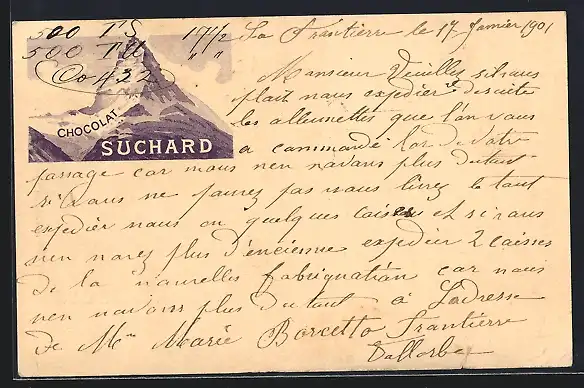 500 TS 17 1/2
500 TU " "
Co 432
CHOCOLAT
SUCHARD
La Frantierre le 17 Janvier 1901
Monsieur Veuillez sil vaus
plait naus expedier de suite
les allumettes que l'on vaus
a commandé lor de votre
passage car naus nen navans plus du taut
si vaus ne pauvez pas naus livrez le taut
expedier naus en quelques caises et si vaus
nen narez plus d'encienne expedier 2 caisses
de la nauvelles fabriquatian car naus
nen navans plus du taut a Ladresse
de Mme Marie Borcetto Frantierre
Vallorbe